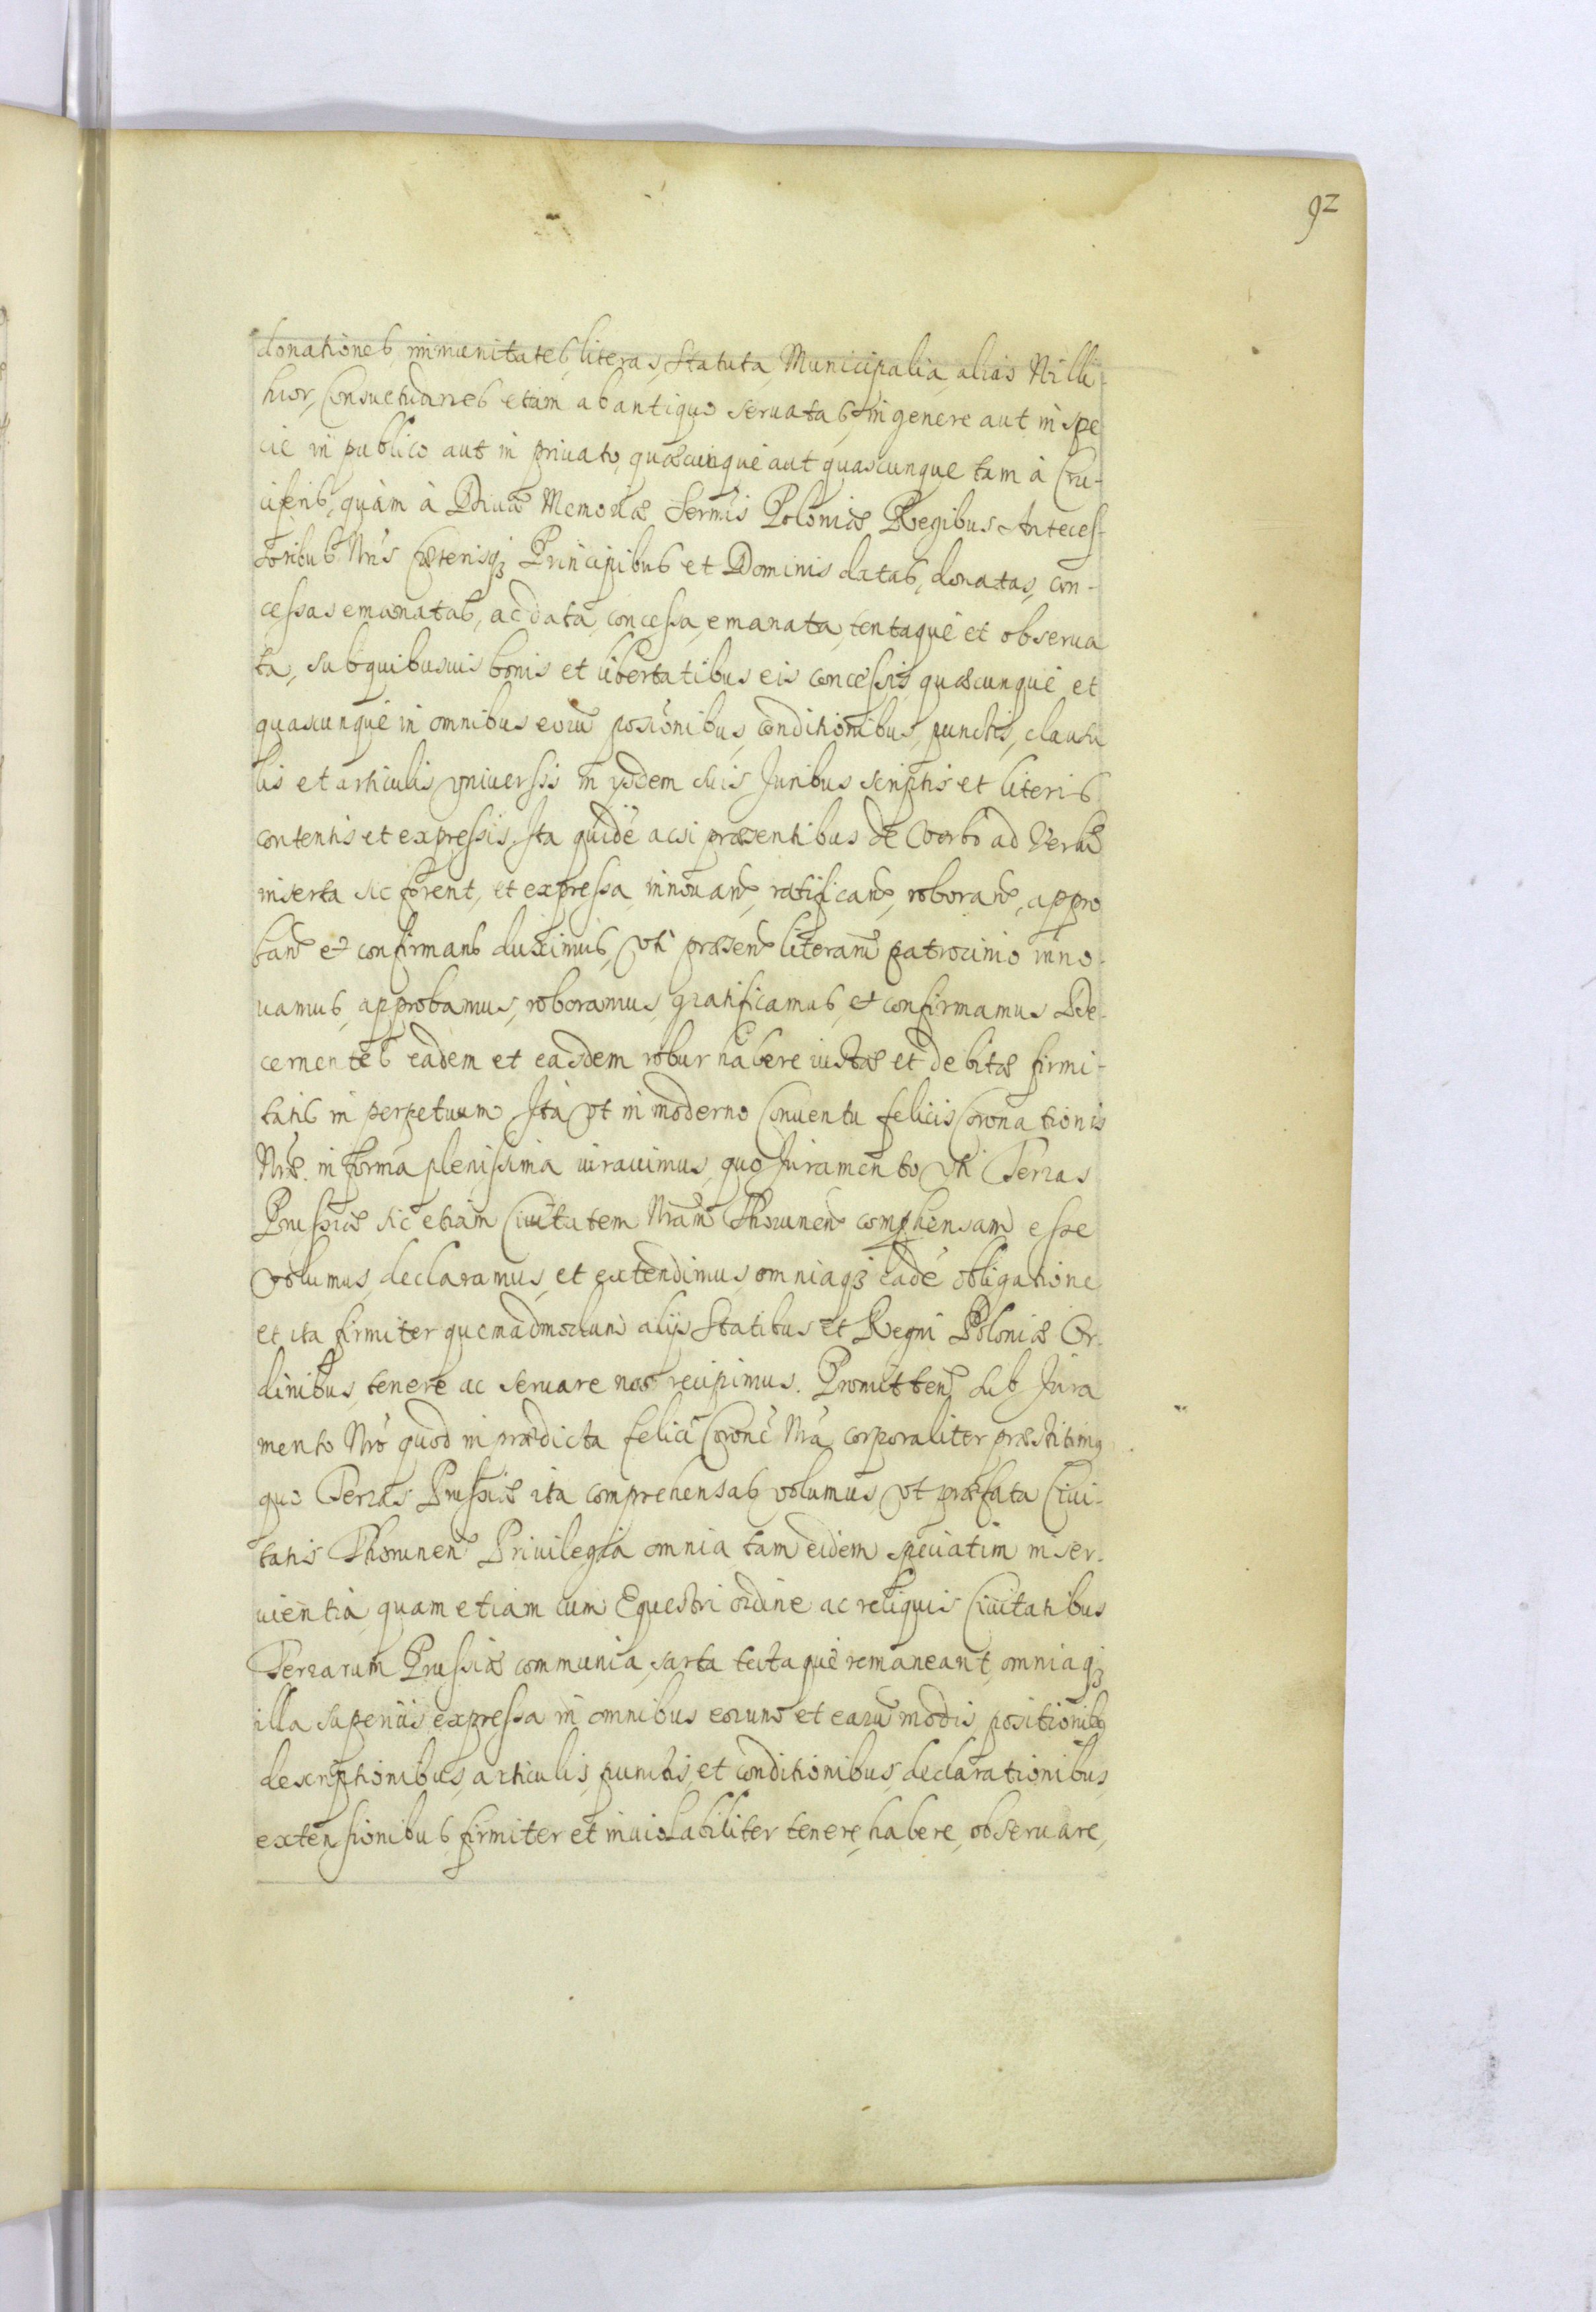 92
donationes, immunitates, literas, Statuta, Municipalia, alias Nilli
hior, Consuetudines etiam ab antiquo seruatas, in genere aut in spe
cie in publico aut in priuato, quæcunque aut quascunque tam à Cru-
ciferis, quàm à Diuæ Memoriæ Sermis Poloniæ Regibus Anteces-
soribus Nris Cæterisq₃ Principibus et Dominis datas, donatas, con-
cessas emanatas, ac data, concessa, emanata, tentaque et obserua
ta, sub quibusuis bonis et libertatibus eis concessis, quæcunque et
quascunque in omnibus eorū posionibus, conditionibus, punctis, clausu
lis et articulis vniuersis in ysdem suis Juribus scriptis et literis
contentis et expressis. Ita quidē acsi præsentibus de Verbo ad Verbū
inserta sic forent, et expressa innouan, ratifican, roboran, appro
ban et confirmans duximus, vti præsen literarū patrocinio inno-
uamus, approbamus, roboramus, gratificamus, et confirmamus De-
cernentes eadem et easdem robur habere iustæ et debitæ firmi-
tatis in perpetuum. Ità vt in moderno Conuentu felicis Coronationis
Nræ. in forma plenissima iurauimus, quo Juramento vti Terras
Prussiæ sic etiam Ciuitatem Nram Thorunen comphensam esse
volumus, declaramus, et extendimus, omniaq₃ eadē obligatione
et ita firmiter quemadmodum alijs Statibus et Regni Poloniæ Or-
dinibus, tenere ac seruare nos recipimus. Promitten sub Jura
mento Nro quod in prædicta felici Coronē Nra corporaliter præstitimq
quo Terras Prussiæ ita comprehensas volumus, vt præfata Ciui-
tatis Thorunen Priuilegia omnia, tam eidem speciatim inser-
uientia, quam etiam cum Equestri ordine ac reliquis Ciuitatibus
Terrarum Prussiæ communia, sarta tectaque remaneant, omniaq₃
illa superius expressa in omnibus eorum et earū modis, positionibq
descriptionibus, articulis, punctis, et conditionibus, declarationibus,
extensionibus, firmiter et inuiolabiliter tenere, habere, obseruare,